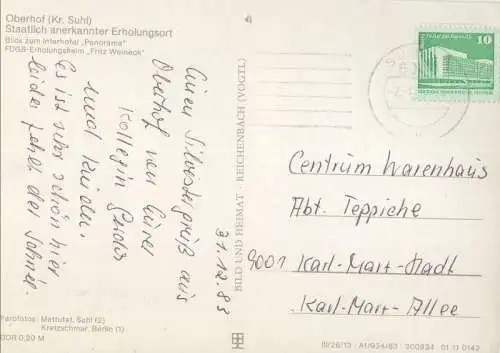 Oberhof (Kr. Suhl)
Staatlich anerkannter Erholungsort
Blick zum Interhotel „Panorama"
FDGB-Erholungsheim „Fritz Weineck"
31.12.83
Einen Silvestergruß aus
Oberhof von Eurer
Kollegin
und Kindern.
Es ist sehr schön hier
leider fehlt der Schnee.
Farbfotos: Suhl (2)
Kretzschmar, Berlin (1)
DDR 0,20 M
BILD UND HEIMAT · REICHENBACH (VOGTL)
10
Centrum Warenhaus
Abt. Teppiche
9001 Karl-Marx-Stadt
Karl-Marx-Allee
III/26/13 · A1/924/83 300934 01 11 0142